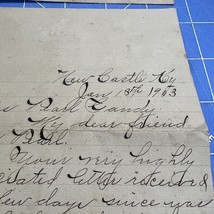 New Castle Ky
Jan 18th 1903
Pearl Gandy
My dear friend
Pearl.
Your very highly
ciated letter received
few days since was